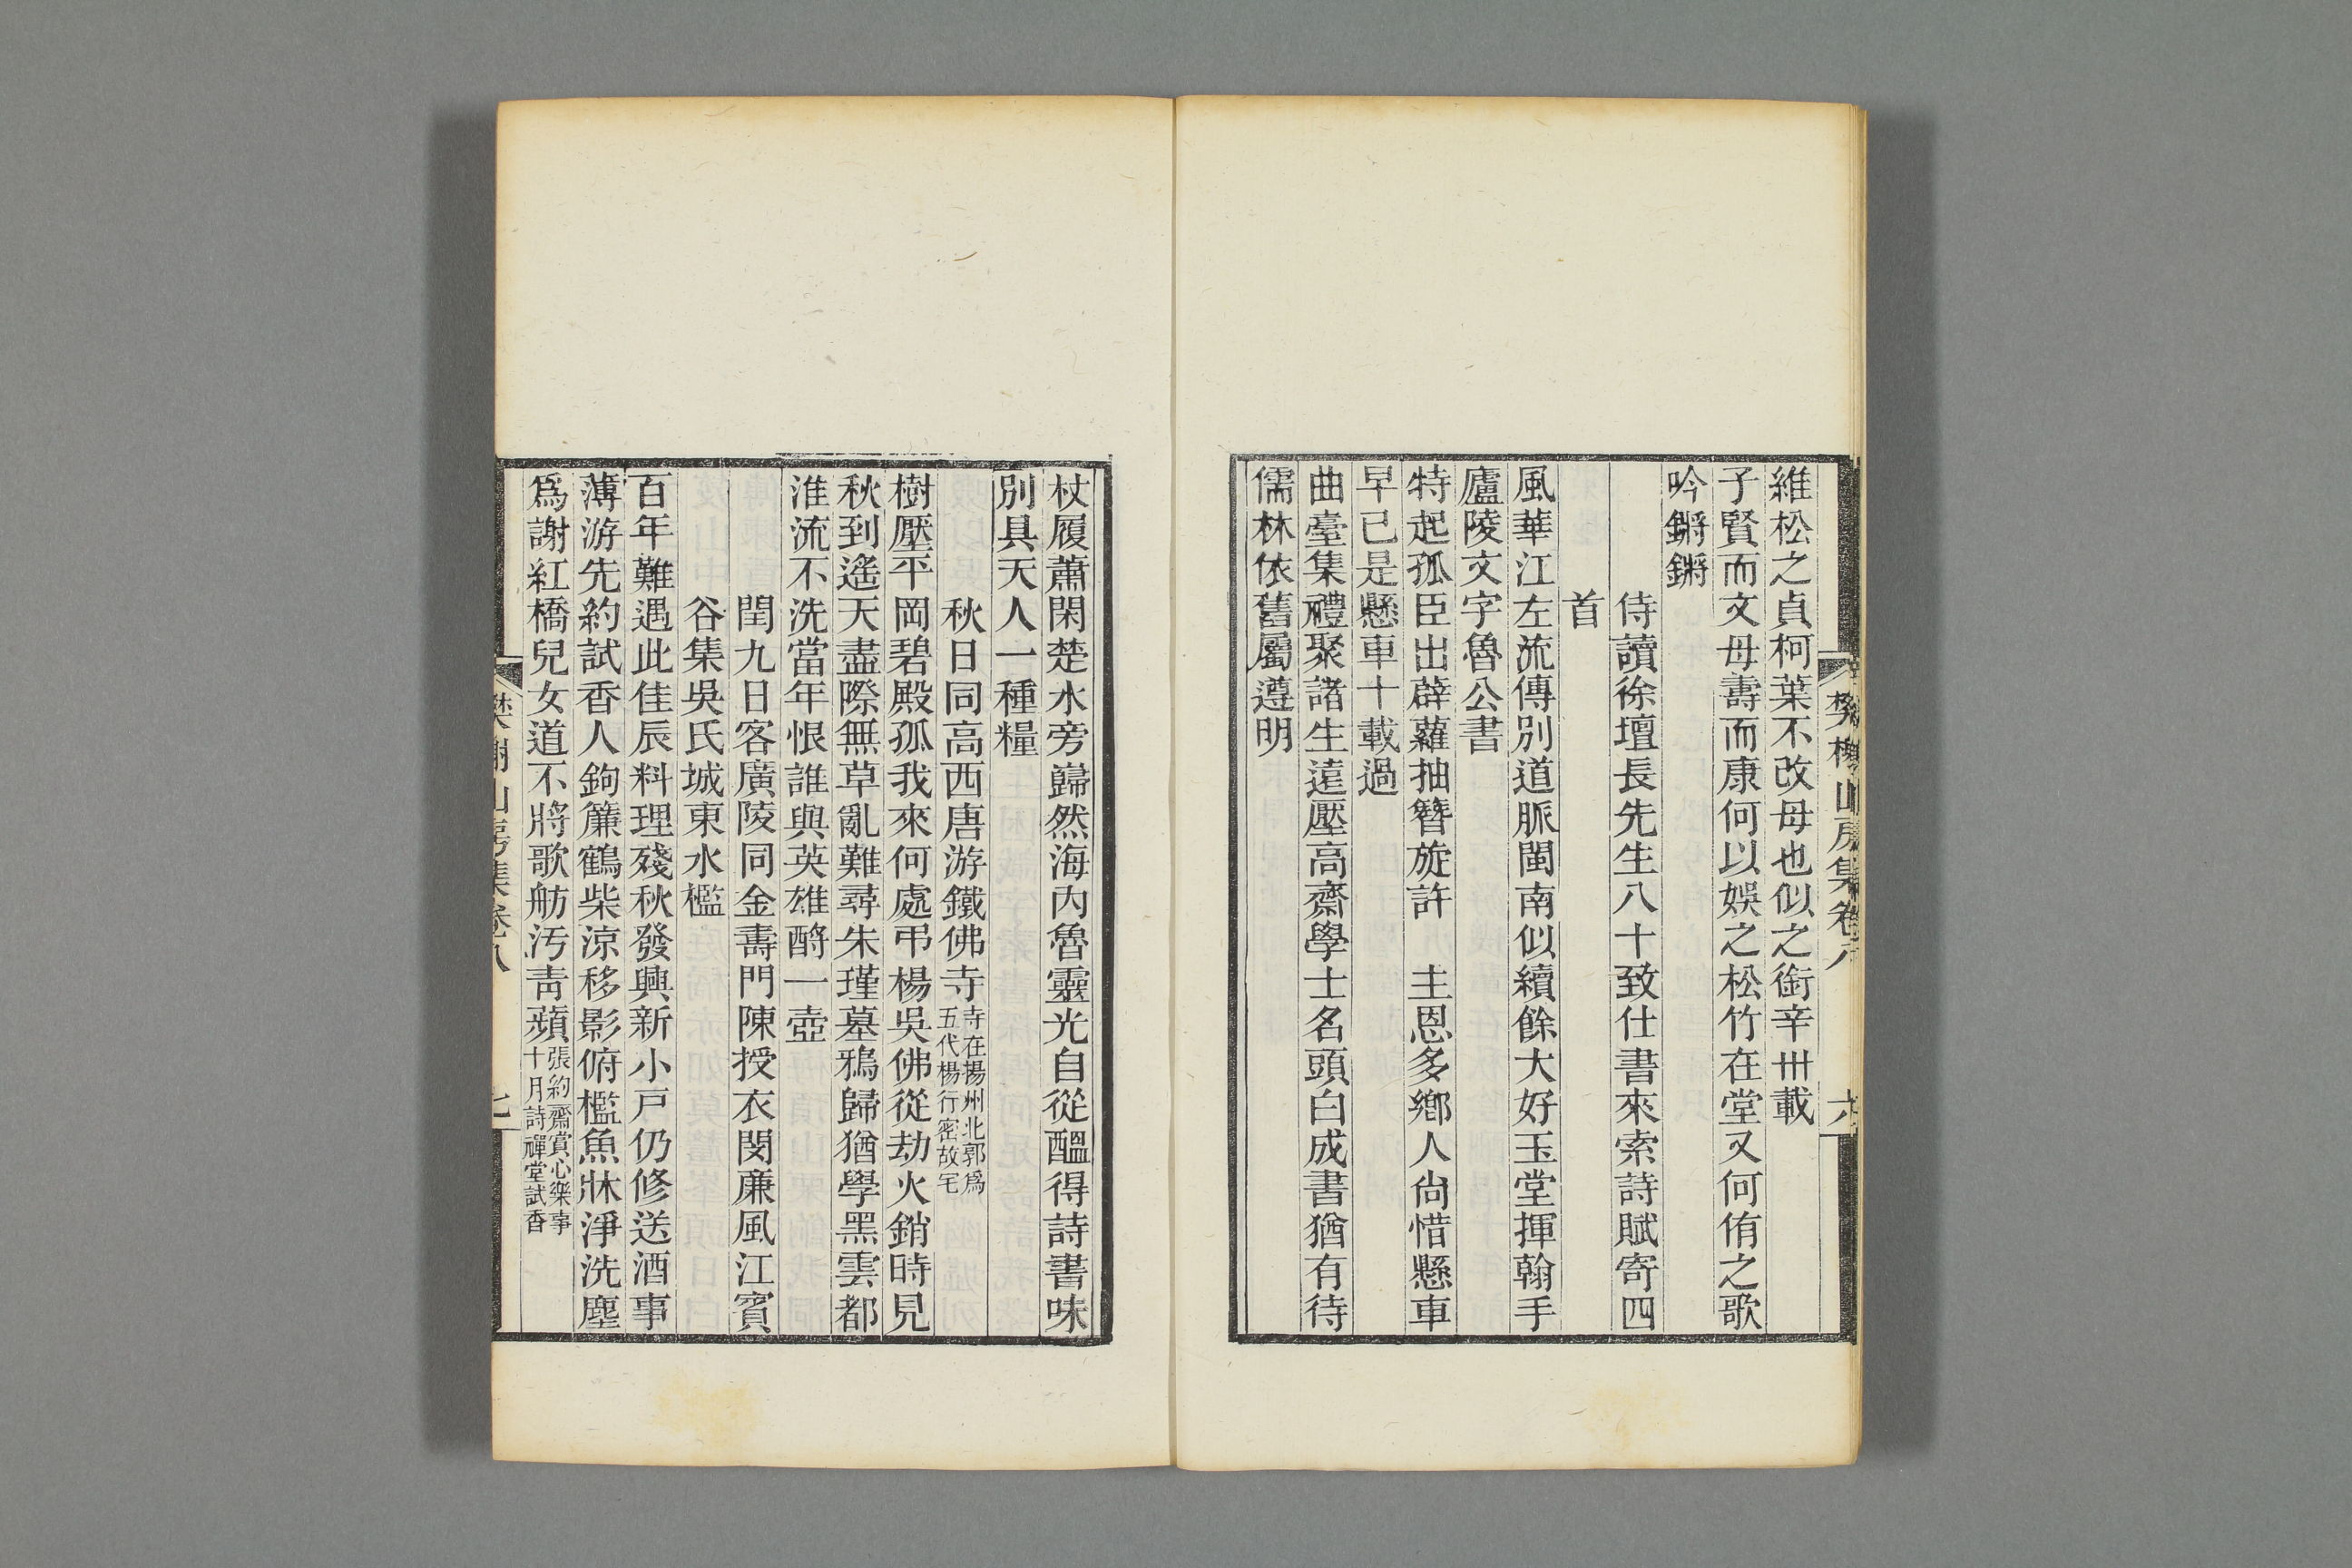 維松之貞柯葉不改母也似之銜辛卅載
子賢而文母壽而康何以娛之松竹在堂又何侑之歌
吟鏘鏘
侍讀徐壇長先生八十致仕書來索詩賦寄四
首
風華江左流傳別道脈閩南似續餘大好玉堂揮翰手
廬陵文字魯公書
特起孤臣出薜蘿抽簪旋許　主恩多鄉人尙惜懸車
早已是懸車十載過
曲臺集禮聚諸生遠壓高齋學士名頭白成書猶有待
儒林依舊屬遵明
樊榭山房集卷八
六
杖履蕭閑楚水旁巋然海內魯靈光自從醞得詩書味
別具天人一種糧
秋日同高西唐游鐵佛寺寺在揚州北郭爲五代楊行密故宅
樹壓平岡碧殿孤我來何處弔楊吳佛從劫火銷時見
秋到遙天盡際無草亂難尋朱瑾墓鴉歸猶學黑雲都
淮流不洗當年恨誰與英雄酹一壺
閏九日客廣陵同金壽門陳授衣閔廉風江賓
谷集吳氏城東水檻
百年難遇此佳辰料理殘秋發興新小戶仍修送酒事
薄游先約試香人鉤簾鶴柴涼移影俯檻魚牀淨洗塵
爲謝紅橋兒女道不將歌舫汚靑蘋張約齋賞心樂事十月詩禪堂試香
樊榭山房集卷八
七